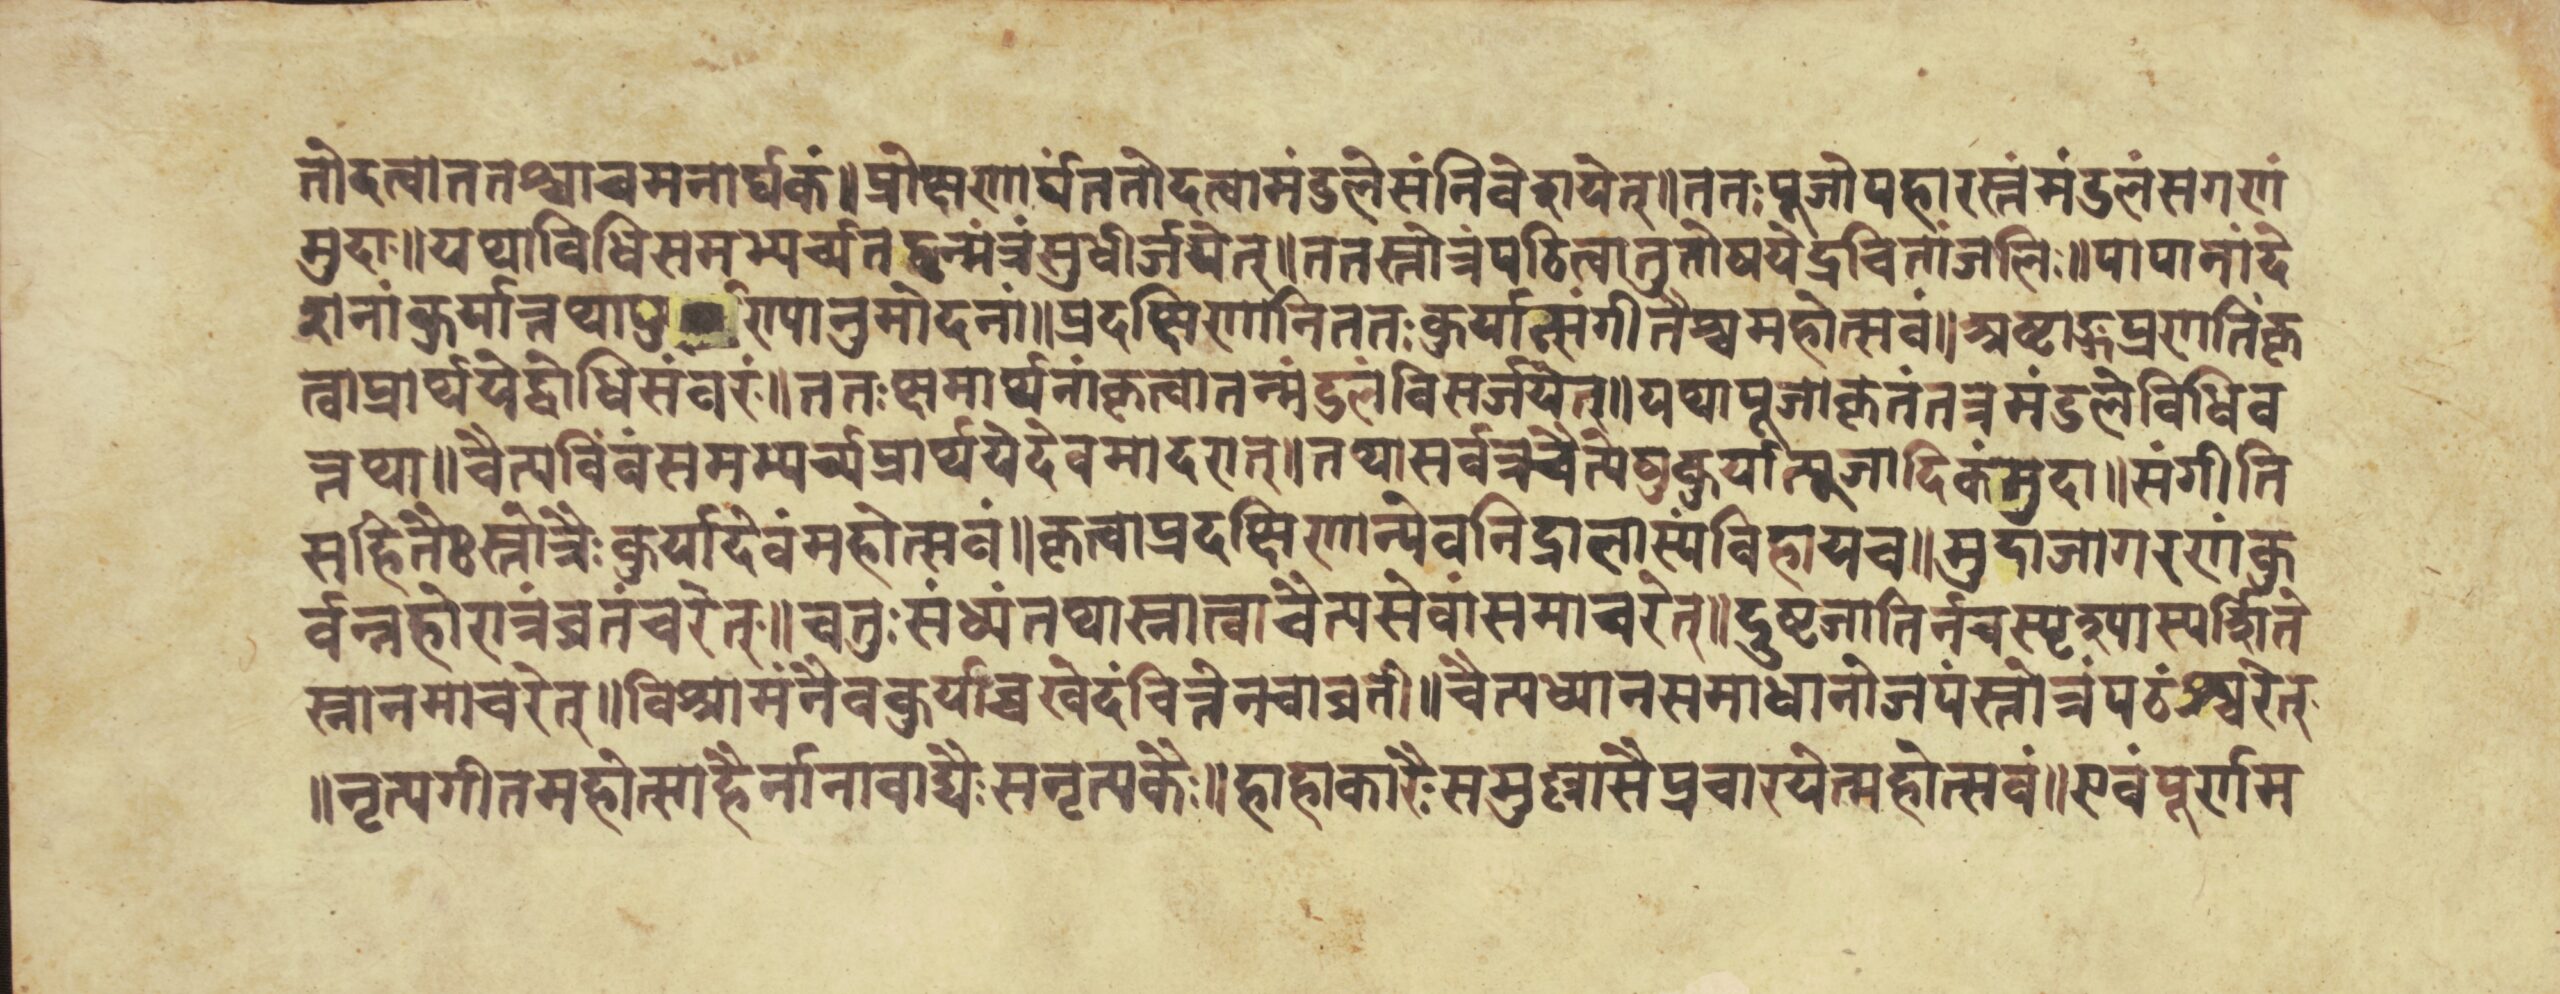 तोदत्वाततश्चाचमनार्घकं॥प्रोक्षणार्घंततोदत्वामंडलेसंनिवेशयेत्॥ततःपूजोपहारस्त्नंमंडलंसगणं
मुदाः॥यथाविधिसमभ्यर्च्यतद्धृन्मंत्रंसुधीर्जपेत्॥ततस्तोत्रंपठित्वातुतोषयेद्रचितांजलिः॥पापानांदे
शनांकुर्यात्तथापुण्यापानुमोदनां॥प्रदक्षिणानिततःकुर्यात्संगीतैश्चमहोत्सवं॥अष्टाङ्गप्रणतिंकृ
त्वाप्रार्थयेद्बोधिसंवरं॥ततःक्षमार्थनांकृत्वातन्मंडलंविसर्जयेत्॥यथापूजाकृतंतत्रमंडलेविधिव
त्तथा॥चैत्यविंवंसमभ्यर्च्यप्रार्थयेदेवमादरात्॥तथासर्वत्रचैत्येषुकुर्यात्पूजादिकंमुदा॥संगीति
सहितैःस्तोत्रैःकुर्यादेवंमहोत्सवं॥कृत्वाप्रदक्षिणान्येवनिद्रालास्यंविहायच॥मुदाजागरणंकु
र्वन्नहोरात्रंव्रतंचरेत्॥चतुःसंध्यंतथास्नात्वाचैत्यसेवांसमाचरेत्॥दुष्टजातिर्नचस्पृक्ष्पास्पर्शितं
स्नानमाचरेत्॥विश्रामंनैवकुर्याच्चखेदंचित्तेनचाव्रती॥चैत्यध्यानसमाधानोजपंस्तोत्रंपठंश्चरेत्
॥नृत्यगीतमहोत्साहैर्नानावाद्यैःसनृत्यकैः॥हाहाकारैःसमुल्लासैप्रचारयेत्महोत्सवं॥एवंपूर्णम